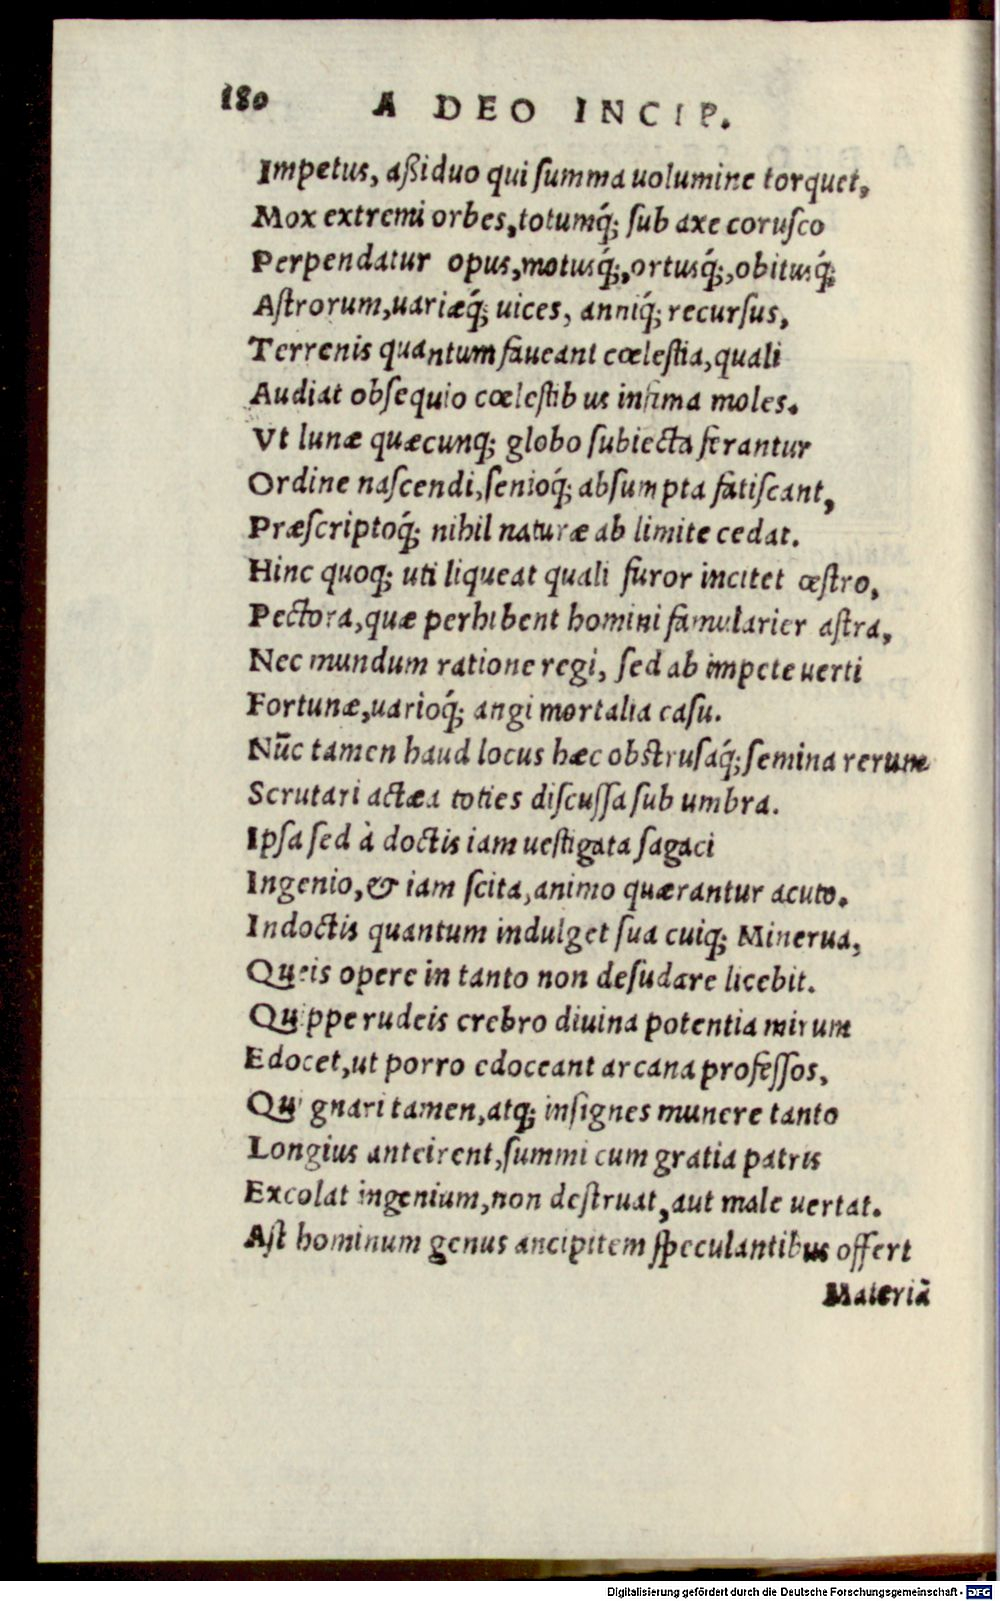 180 A DEO INCIP.
Impetus, aßiduo qui ſumma uolumine torquet,
Mox extremi orbes, totumq́; ſub axe coruſco
Perpendatur opus, motusq́;, ortusq́;, obitusq́;
Aſtrorum, uariæq́; uices, anniq́; recurſus,
Terrenis quantum faueant cœleſtia, quali
Audiat obſequio cœleſtibus infima moles.
Vt lunæ quæcunq; globo ſubiecta ferantur
Ordine naſcendi, ſenioq́; abſumpta fatiſcant,
Præſcriptoq́; nihil naturæ ab limite cedat.
Hinc quoq; uti liqueat quali furor incitet œſtro,
Pectora, quæ perhibent homini famularier aſtra,
Nec mundum ratione regi, ſed ab impete uerti
Fortunæ, uarioq́; angi mortalia caſu.
Nūc tamen haud locus hæc obſtruſaq́; ſemina rerum
Scrutari actæa toties diſcuſſa ſub umbra.
Ipſa ſed à doctis iam ueſtigata ſagaci
Ingenio, & iam ſcita, animo quærantur acuto.
Indoctis quantum indulget ſua cuiq; Minerua,
Queis opere in tanto non deſudare licebit.
Quippe rudeis crebro diuina potentia mirum
Edocet, ut porro edoceant arcana profeſſos,
Qui gnari tamen, atq; inſignes munere tanto
Longius anteirent, ſummi cum gratia patris
Excolat ingenium, non deſtruat, aut male uertat.
Aſt hominum genus ancipitem ſpeculantibus offert
Materiā
Digitalisierung gefördert durch die Deutsche Forschungsgemeinschaft - DFG